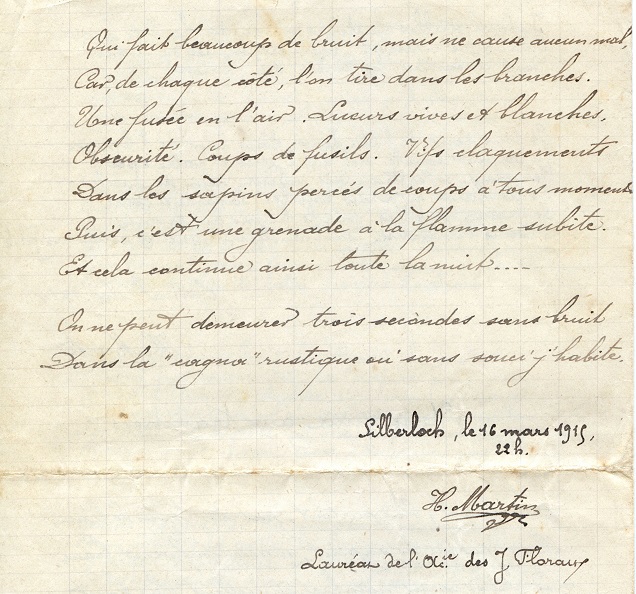 Qui fait beaucoup de bruit, mais ne cause aucun mal,
Car, de chaque côté, l'on tire dans les branches.
Une fusée en l'air. Lueurs vives et blanches.
Obscurité. Coups de fusils. Vifs claquements
Dans les sapins percés de coups à tous moments
Puis, c'est une grenade à la flamme subite.
Et cela continue ainsi toute la nuit....
On ne peut demeurer trois secondes sans bruit
Dans la "cagna" rustique où sans souci j'habite.
Silberloch, le 16 mars 1915,
22h.
H. Martin
Lauréat de l'Acie. des J. Floraux